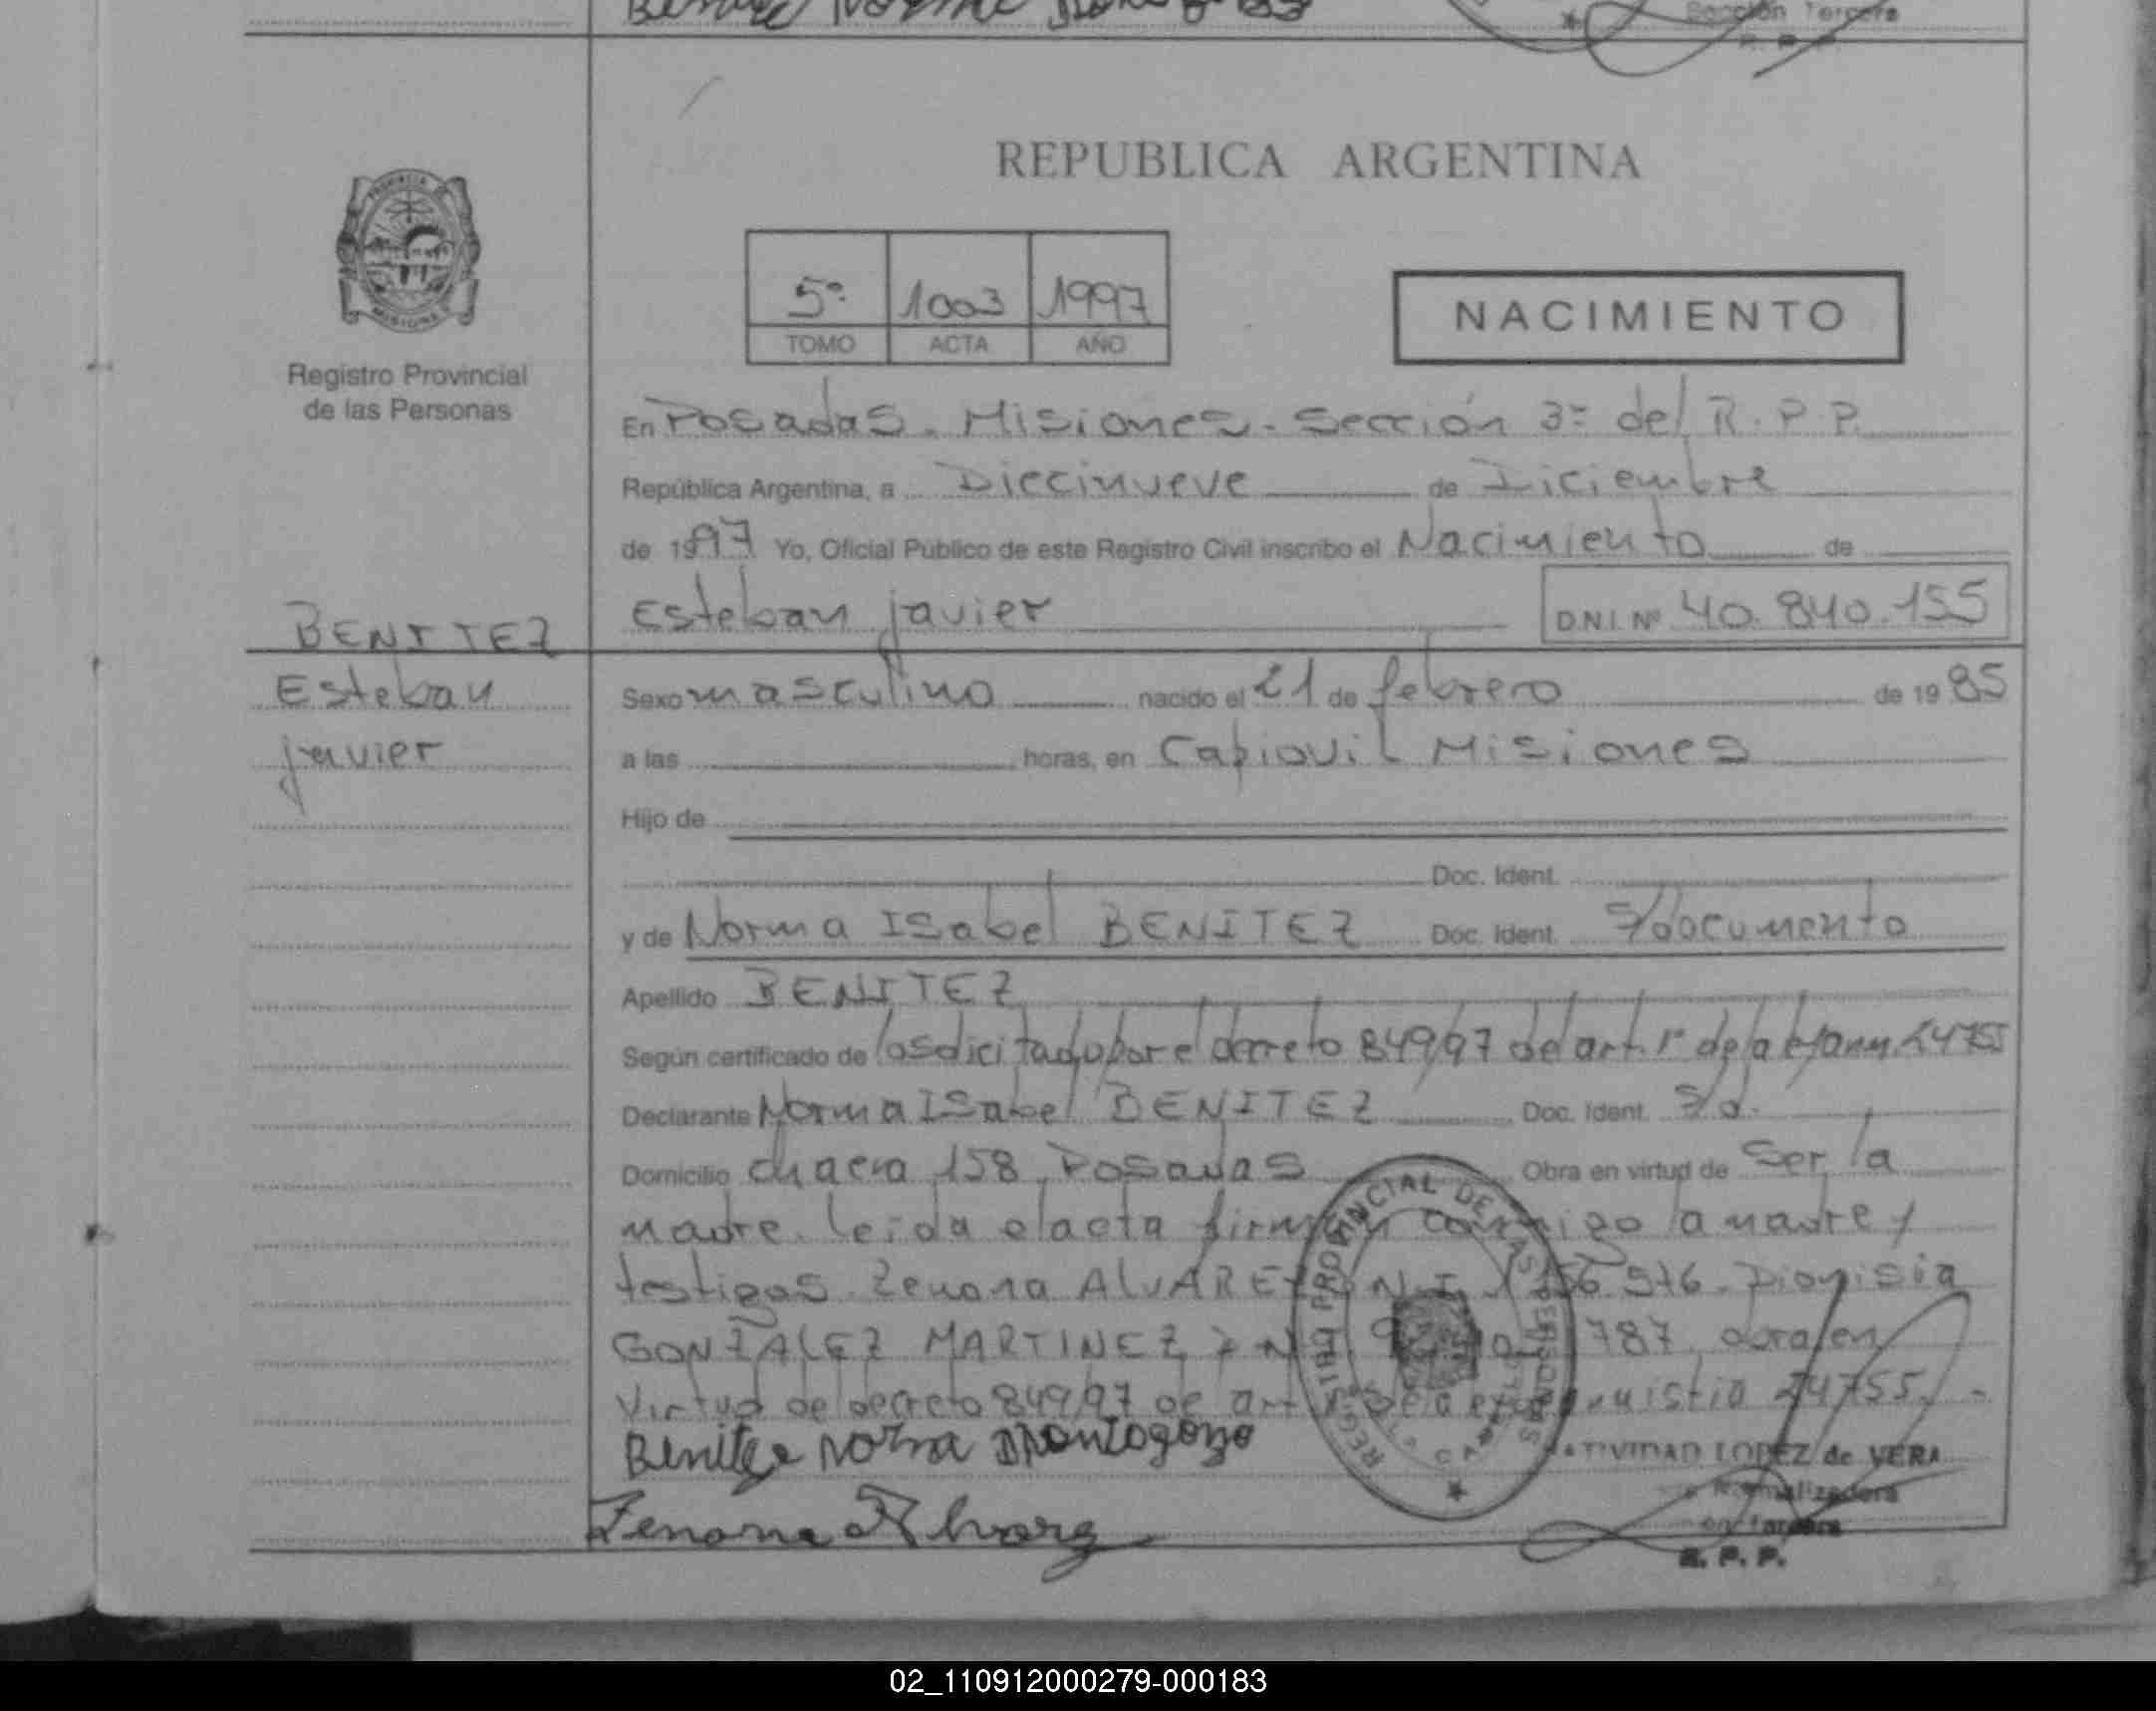 Sección Tercera
R. P. P.
REPUBLICA ARGENTINA
5º 1003 1997
TOMO ACTA AÑO
NACIMIENTO
MISIONES
Registro Provincial
de las Personas
En Posadas. Misiones. Sección 3º del R.P.P.
República Argentina, a Diecinueve de Diciembre
de 1997 Yo, Oficial Público de este Registro Civil inscribo el Nacimiento de
Esteban javier D.N.I. Nº 40.840.155
BENITEZ
Esteban
javier
Sexo masculino nacido el 21 de febrero de 1985
a las horas, en Capiovi Misiones
Hijo de
Doc. Ident.
y de Norma ISabel BENITEZ Doc. Ident. S/documento
Apellido BENITEZ
Según certificado de decreto 849/97 de art. 1º de la 
Declarante Norma ISabel BENITEZ Doc. Ident. S/d.
Domicilio chacra 158 Posadas Obra en virtud de Ser la
madre. leida el acta firman conmigo la madre y
testigos. Zenona ALVAREZ 576. Dionisia
GONZALEZ MARTINEZ 787. obra en
Virtud del decreto 849/97 de art 24755.
Benitez Norma
Zenona Alvarez
REGISTRO PROVINCIAL DE LAS PERSONAS
NATIVIDAD LOPEZ de VERA
R. P. P.
02_110912000279-000183